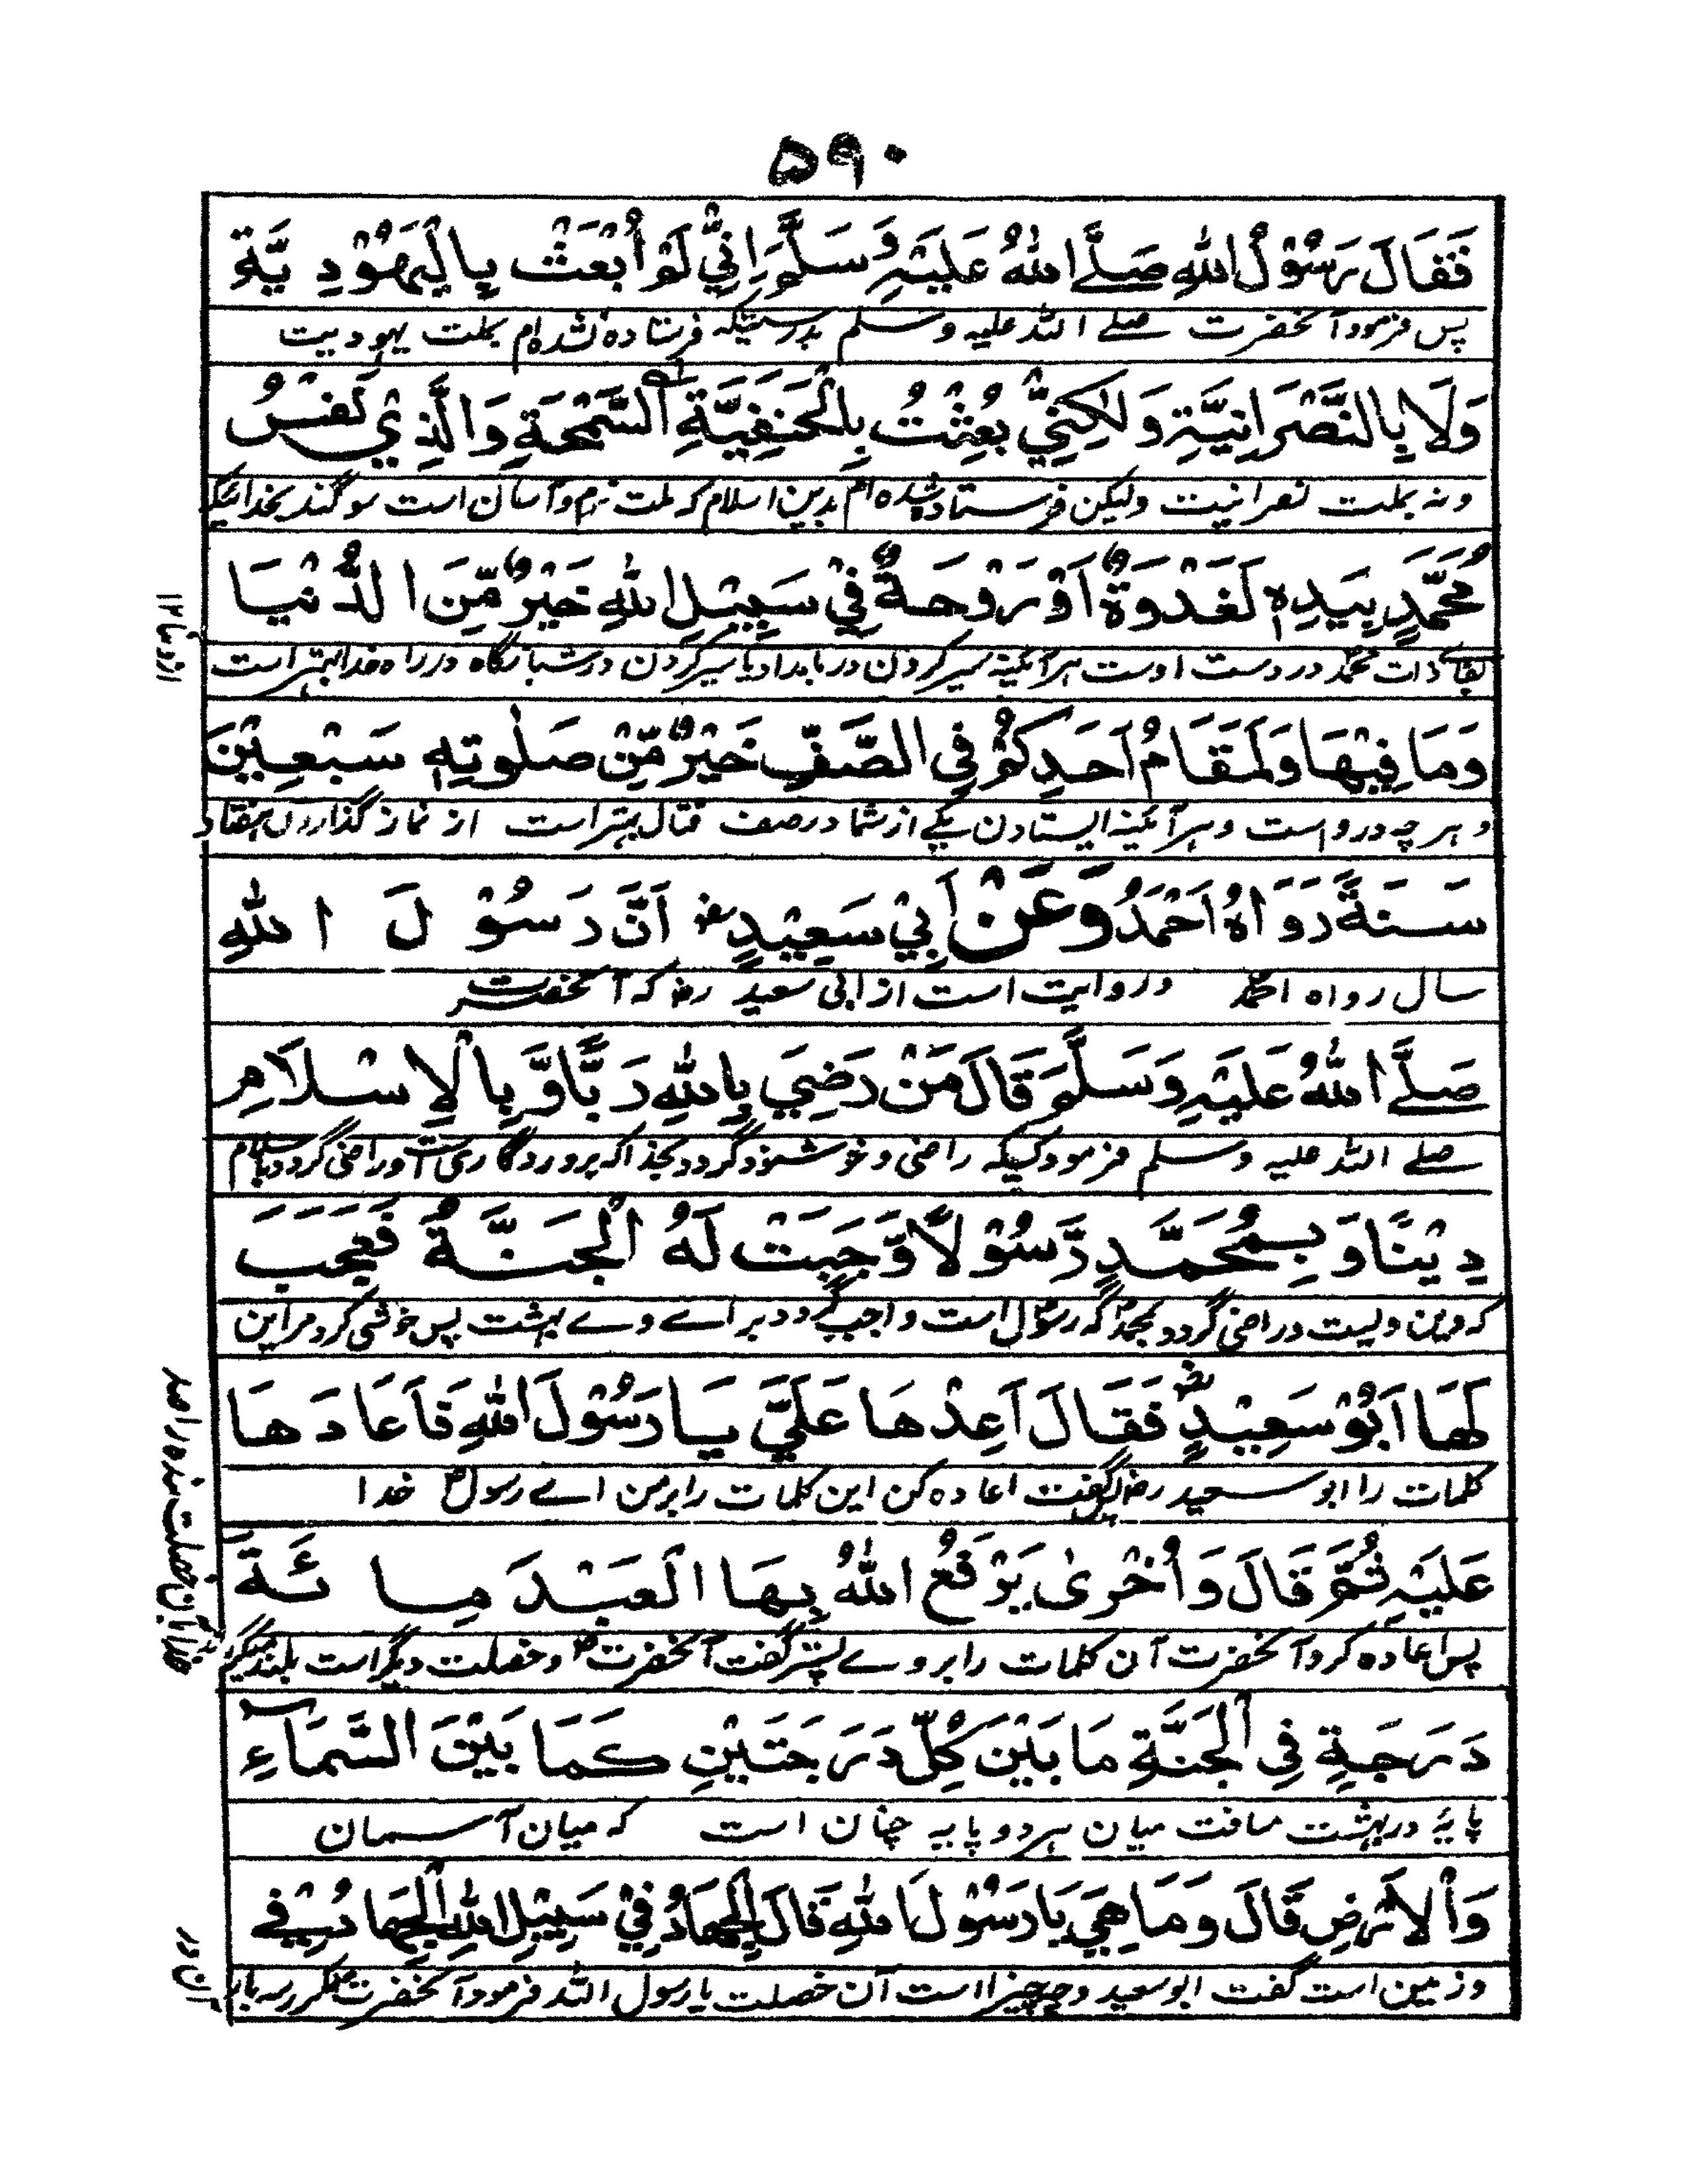 ۵۹۰
فَقَالَ رَسُوْلُ اللهِ صَلَّے اللهُ عَلَيْهِ وَسَلَّمَ اِنِّيْ لَمْ اُبْعَثْ بِالْيَهُوْدِيَّةِ
پس فرمود آنحضرت صلے اللہ علیہ وسلم بدرستیکہ فرستادہ نشدہ ام بملت یہودیت
وَلَا بِالنَّصْرَانِيَّةِ وَلٰكِنِّيْ بُعِثْتُ بِالْحَنِفِيَّةِ السَّمْحَةِ وَالَّذِيْ نَفْسُ
ونہ بملت نصرانیت ولیکن فرستادہ شدہ ام بدین اسلام کہ ملت نرم وآسان است سوگند بخدائیکہ
مُحَمَّدٍ بِيَدِهٖ لَغَدْوَةٌ اَوْ رَوْحَةٌ فِيْ سَبِيْلِ اللهِ خَيْرٌ مِّنَ الدُّنْيَا
بقاے ذات محمد در دست اوست ہرآئینہ سیر کردن در بامداد یا سیر کردن در شبانگاہ در راہ خدا بہتر است
از دنیا ۱۲
وَمَا فِيْهَا وَلَمَقَامُ اَحَدِكُمْ فِي الصَّفِّ خَيْرٌ مِّنْ صَلٰوتِهٖ سَبْعِيْنَ
وہرچہ درواست وہرآئینہ ایستادن یکے از شما در صف قتال بہتر است از نماز گذاردن ہفتاد
سَنَةً رَوَاهُ اَحْمَدُ وَعَنْ اَبِيْ سَعِيْدٍ اَنَّ رَسُوْلَ اللهِ
سال رواہ احمد و روایت است از ابی سعید رض کہ آنحضرت
صَلَّے اللهُ عَلَيْهِ وَسَلَّمَ قَالَ مَنْ رَضِيَ بِاللهِ رَبًّا وَّبِالْاِسْلَامِ
صلے اللہ علیہ وسلم فرمود کسیکہ راضی وخوشنود گردد بخدا کہ پروردگاری است وراضی گردد باسلام
دِيْنًا وَبِمُحَمَّدٍ رَّسُوْلًا وَّجَبَتْ لَهُ الْجَنَّةُ فَعَجِبَ
کہ دین ویست وراضی گردد بمحمد کہ رسول است واجب گردد براے وے بہشت پس خوشی کرد مر این
لَهَا اَبُوْ سَعِيْدٍ فَقَالَ اَعِدْهَا عَلَيَّ يَا رَسُوْلَ اللهِ فَاَعَادَهَا
کلمات را ابو سعید رض گفت اعادہ کن این کلمات را بر من اے رسول خدا
عَلَيْهِ ثُمَّ قَالَ وَاُخْرٰى يَرْفَعُ اللهُ بِهَا الْعَبْدَ مِائَةَ
پس اعادہ کرد آنحضرت آن کلمات را بروے پستر گفت آنحضرت وخصلت دیگر است بلند میگرداند
خدا بآن خصلت بندہ را صد
دَرَجَةٍ فِى الْجَنَّةِ مَا بَيْنَ كُلِّ دَرَجَتَيْنِ كَمَا بَيْنَ السَّمَاءِ
پایۂ در بہشت مسافت میان ہر دو پایہ چنان است کہ میان آسمان
وَالْاَرْضِ قَالَ وَمَا هِيَ يَا رَسُوْلَ اللهِ قَالَ الْجِهَادُ فِيْ سَبِيْلِ اللهِ الْجِهَادُ فِے
وزمین است گفت ابوسعید وچہ چیز است آن خصلت یا رسول اللہ فرمود آنحضرت مکرر سہ بار
آن در